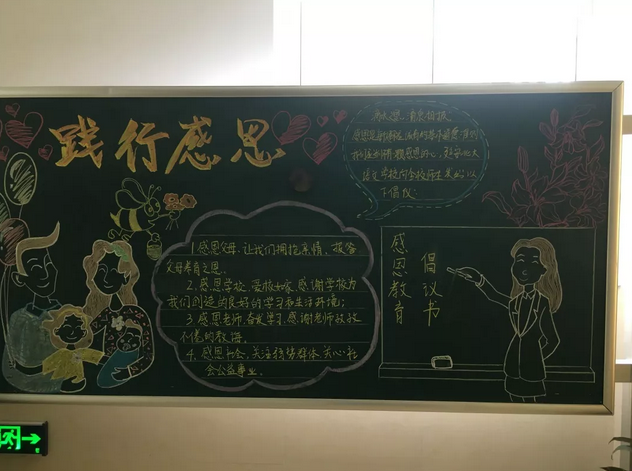 践行感恩
学校向全校师生发出以
下倡议:
1.感恩父母,让我们拥抱亲情、报答
父母养育之恩。
2.感恩学校,爱校如家,感谢学校为
我们创造的良好的学习和生活环境;
3.感恩老师,奋发学习,感谢老师孜孜
不倦的教诲。
4.感恩社会,关注弱势群体,关心社
会公益事业。
感恩教育
倡议书